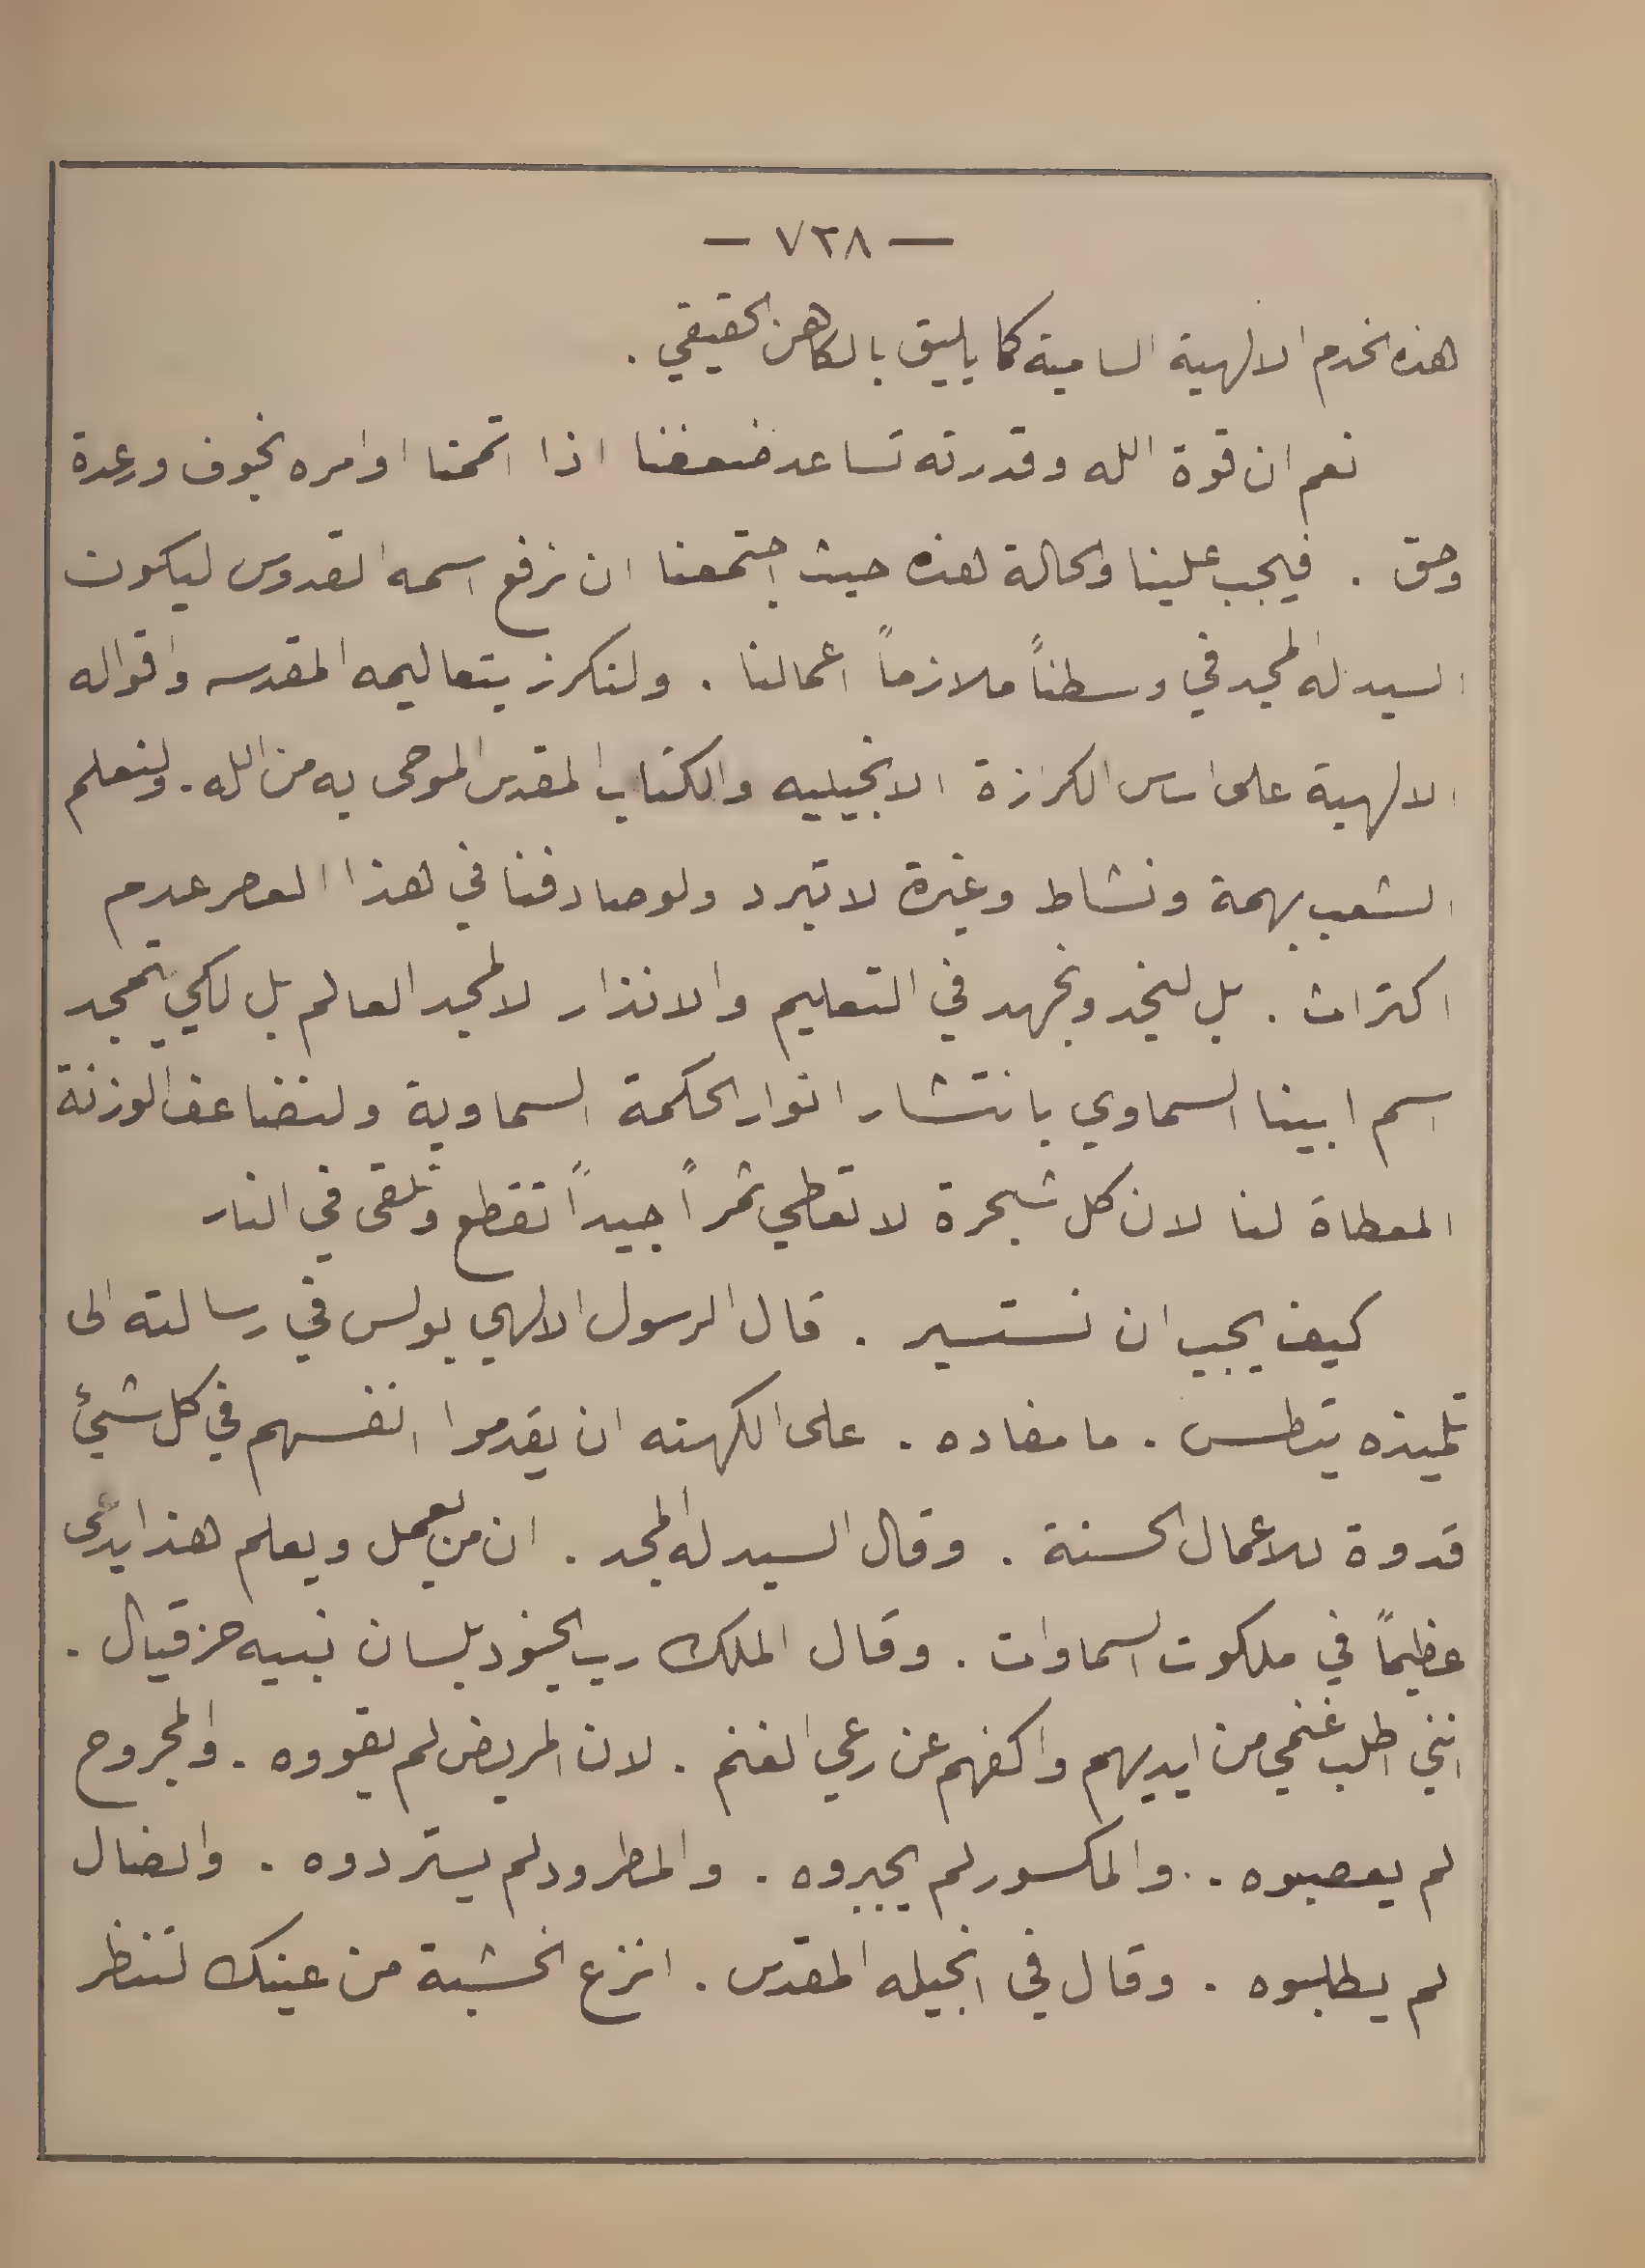 — ٧٢٨ —
هذه الخدم الالهية السامية كما يليق بالكاهن الحقيقي .
نعم ان قوة الله وقدرته تساعد ضعفنا اذا اتممنا اوامره بخوف ورعدة
وحق . فيجب علينا والحالة هذه حيث اجتمعنا ان نرفع اسمه القدوس ليكون
السيد له المجد في وسطناً ملازماً اعمالنا . ولنكرز بتعاليمه المقدسه واقواله
الالهية على اساس الكرازة الانجيليه والكتاب المقدس الموحى به من الله . ولنعلم
الشعب بهمة ونشاط وغيرة لا تبرد ولو صادفنا في هذا العصر عدم
اكتراث . بل لنجد ونجهد في التعليم والانذار لا لمجد العالم بل لكي يتمجد
اسم ابينا السماوي بانتشار انوار الحكمة السماوية ولنضاعف الوزنة
المعطاة لنا لان كل شجرة لا تعطي ثمراً جيداً تقطع وتلقى في النار
كيف يجب ان نستسير . قال الرسول الالهي بولس في رسالته الى
تلميذه تيطس . ما مفاده . على الكهنه ان يقدموا انفسهم في كل شيئ
قدوة للاعمال الحسنة . وقال السيد له المجد . ان من يعمل ويعلم هذا يدعى
عظيماً في ملكوت السماوات . وقال الملك رب الجنود بلسان نبيه حزقيال .
انني اطلب غنمي من ايديهم واكفهم عن رعي الغنم . لان المريض لم يقووه . والمجروح
لم يعصبوه . والمكسور لم يجبروه . والمطرود لم يستردوه . والضال
لم يطلبوه . وقال في انجيله المقدس . انزع الخشبة من عينك لتنظر